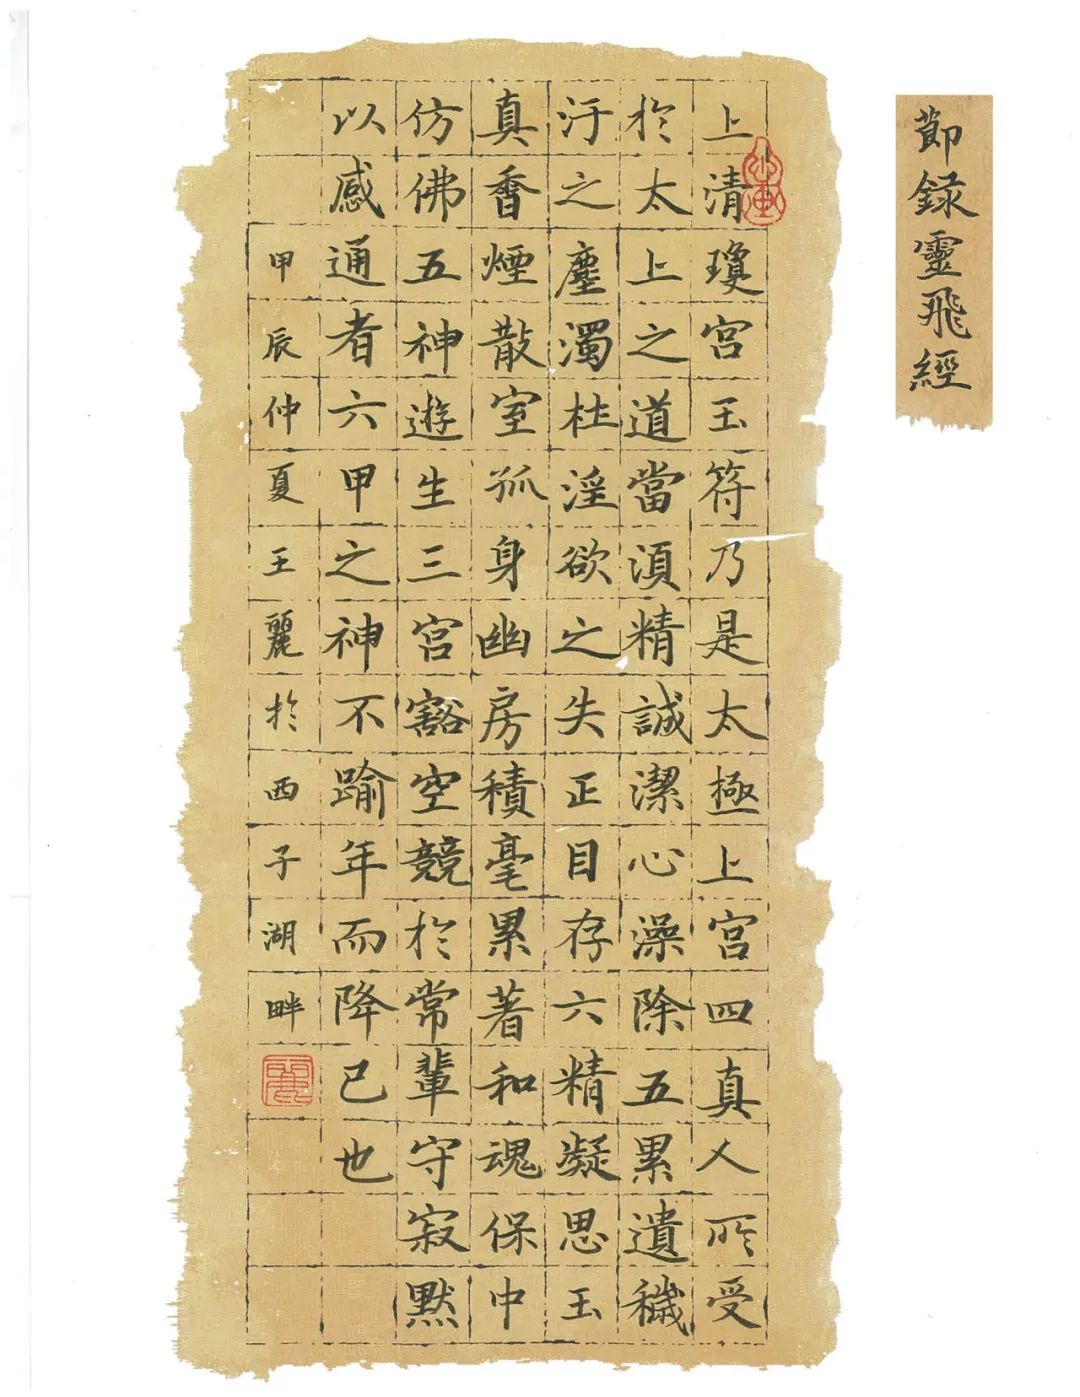 節錄靈飛經
上清瓊宮玉符乃是太極上宮四真人所受
於太上之道當須精誠潔心澡除五累遺穢
汙之塵濁杜淫欲之失正目存六精凝思玉
真香煙散室孤身幽房積毫累著和魂保中
仿佛五神遊生三宮豁空競於常輩守寂默
以感通者六甲之神不踰年而降已也
甲辰仲夏王麗於西子湖畔
麗